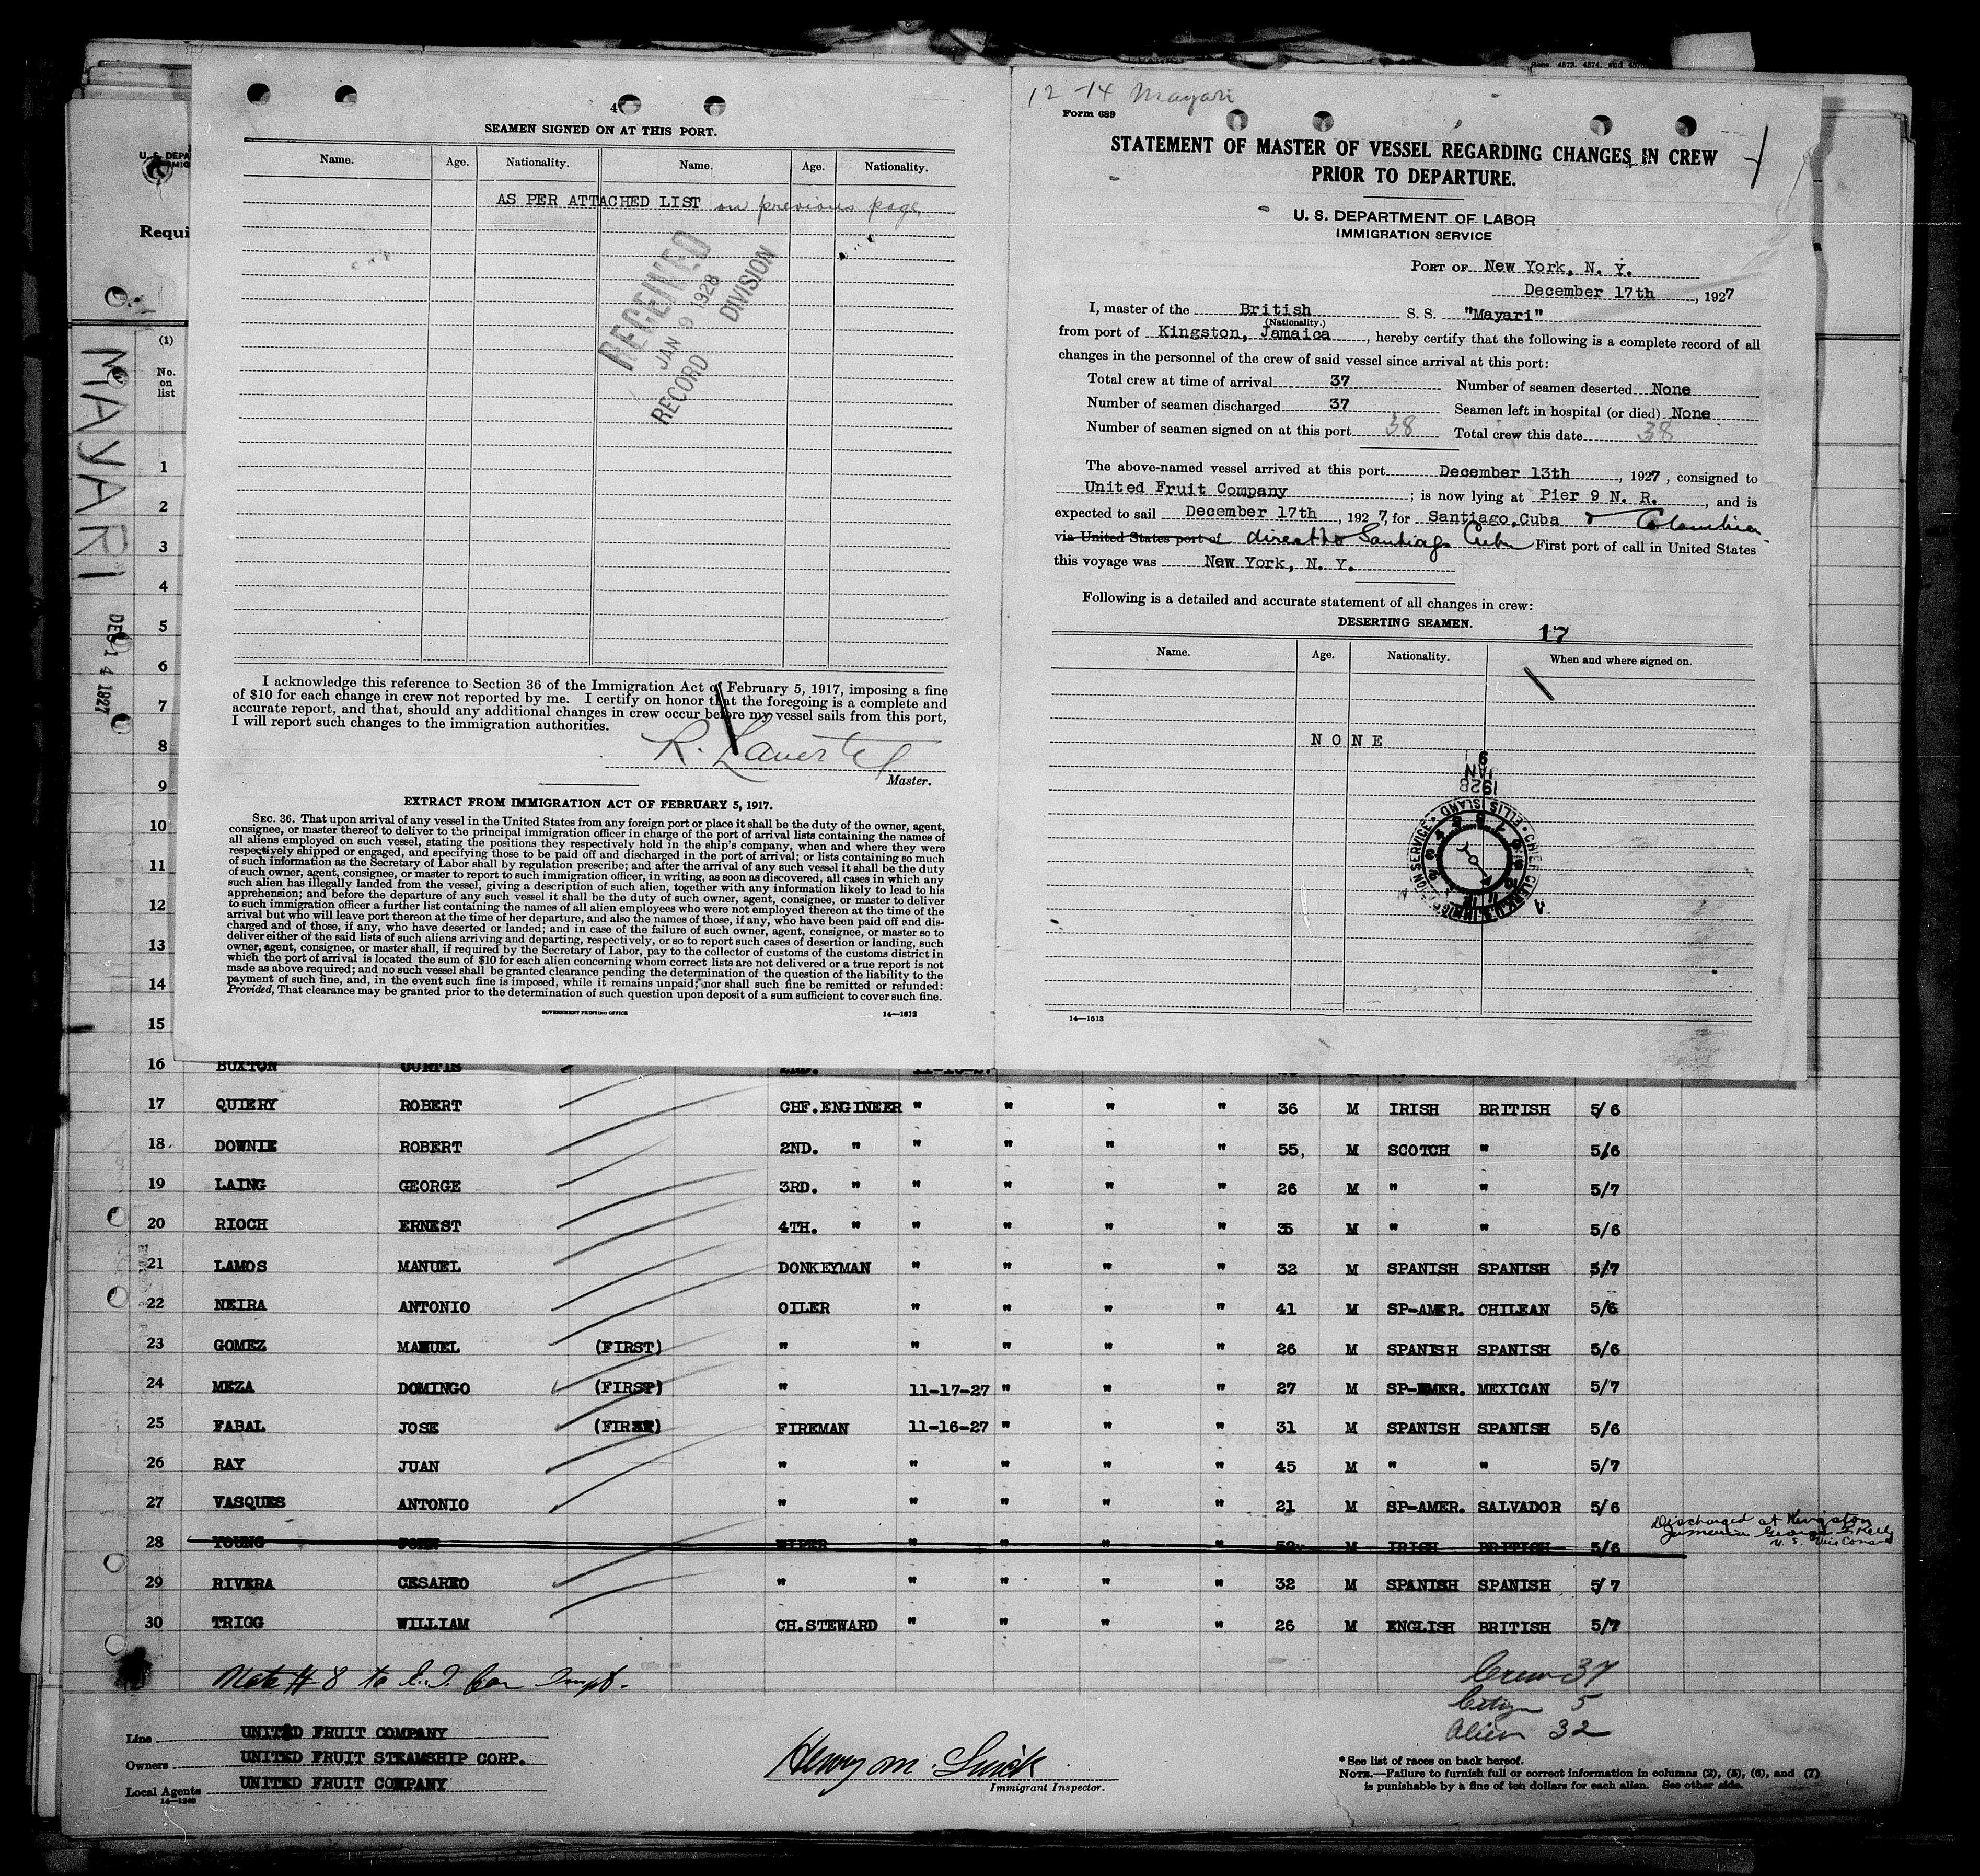 4
SEAMEN SIGNED ON AT THIS PORT.
Name. Age. Nationality. Name. Age. Nationality.
AS PER ATTACHED LIST on previous page
RECEIVED
JAN 9 1928
RECORD DIVISION
I acknowledge this reference to Section 36 of the Immigration Act of February 5, 1917, imposing a fine
of $10 for each change in crew not reported by me. I certify on honor that the foregoing is a complete and
accurate report, and that, should any additional changes in crew occur before my vessel sails from this port,
I will report such changes to the immigration authorities.
R.
Master.
EXTRACT FROM IMMIGRATION ACT OF FEBRUARY 5, 1917.
SEC. 36. That upon arrival of any vessel in the United States from any foreign port or place it shall be the duty of the owner, agent,
consignee, or master thereof to deliver to the principal immigration officer in charge of the port of arrival lists containing the names of
all aliens employed on such vessel, stating the positions they respectively hold in the ship's company, when and where they were
respectively shipped or engaged, and specifying those to be paid off and discharged in the port of arrival; or lists containing so much
of such information as the Secretary of Labor shall by regulation prescribe; and after the arrival of any such vessel it shall be the duty
of such owner, agent, consignee, or master to report to such immigration officer, in writing, as soon as discovered, all cases in which any
such alien has illegally landed from the vessel, giving a description of such alien, together with any information likely to lead to his
apprehension; and before the departure of any such vessel it shall be the duty of such owner, agent, consignee, or master to deliver
to such immigration officer a further list containing the names of all alien employees who were not employed thereon at the time of the
arrival but who will leave port thereon at the time of her departure, and also the names of those, if any, who have been paid off and dis-
charged and of those, if any, who have deserted or landed; and in case of the failure of such owner, agent, consignee, or master so to
deliver either of the said lists of such aliens arriving and departing, respectively, or so to report such cases of desertion or landing, such
owner, agent, consignee, or master shall, if required by the Secretary of Labor, pay to the collector of customs of the customs district in
which the port of arrival is located the sum of $10 for each alien concerning whom correct lists are not delivered or a true report is not
made as above required; and no such vessel shall be granted clearance pending the determination of the question of the liability to the
payment of such fine, and, in the event such fine is imposed, while it remains unpaid; nor shall such fine be remitted or refunded:
Provided, That clearance may be granted prior to the determination of such question upon deposit of a sum sufficient to cover such fine.
GOVERNMENT PRINTING OFFICE 14—1613
12-14 Mayari
Form 689
STATEMENT OF MASTER OF VESSEL REGARDING CHANGES IN CREW
PRIOR TO DEPARTURE.
U. S. DEPARTMENT OF LABOR
IMMIGRATION SERVICE
PORT OF New York, N. Y.
December 17th, 1927
I, master of the British S. S. "Mayari"
(Nationality.)
from port of Kingston, Jamaica, hereby certify that the following is a complete record of all
changes in the personnel of the crew of said vessel since arrival at this port:
Total crew at time of arrival 37 Number of seamen deserted None
Number of seamen discharged 37 Seamen left in hospital (or died) None
Number of seamen signed on at this port 38 Total crew this date 38
The above-named vessel arrived at this port December 13th, 1927, consigned to
United Fruit Company; is now lying at Pier 9 N. R., and is
expected to sail December 17th, 1927, for Santiago, Cuba & Colombia
via United States port of direct to Santiago Cuba First port of call in United States
this voyage was New York, N. Y.
Following is a detailed and accurate statement of all changes in crew:
DESERTING SEAMEN.
17
Name. Age. Nationality. When and where signed on.
NONE
JAN 9
1928
CHIEF CLERK U.S. IMMIGRATION SERVICE ELLIS ISLAND
14—1613
U. S. DEPA
Requi
MAYARI
DEC 14 1927
(1)
No.
on
list
1
2
3
4
5
6
7
8
9
10
11
12
13
14
15
16 BUXTON CURTIS 2ND. 11-16-27
17 QUIERY ROBERT CHF.ENGINEER " " " " 36 M IRISH BRITISH 5/6
18 DOWNIE ROBERT 2ND. " " " " " 55, M SCOTCH " 5/6
19 LAING GEORGE 3RD. " " " " " 26 M " " 5/7
20 RIOCH ERNEST 4TH. " " " " " 35 M " " 5/6
21 LAMOS MANUEL DONKEYMAN " " " " 32 M SPANISH SPANISH 5/7
22 NEIRA ANTONIO OILER " " " " 41 M SP-AMER. CHILEAN 5/6
23 GOMEZ MANUEL (FIRST) " " " " " 26 M SPANISH SPANISH 5/6
24 MEZA DOMINGO (FIRST) " 11-17-27 " " " 27 M SP-AMER. MEXICAN 5/7
25 FABAL JOSE (FIRST) FIREMAN 11-16-27 " " " 31 M SPANISH SPANISH 5/6
26 RAY JUAN " " " " " 45 M " " 5/7
27 VASQUES ANTONIO " " " " " 21 M SP-AMER. SALVADOR 5/6
28 YOUNG JOHN WIPER " " " " 52 M IRISH BRITISH 5/6 Discharged at Kingston
Jamaica George F. Kelly
U. S. Vice Consul
29 RIVERA CESAREO " " " " " 32 M SPANISH SPANISH 5/7
30 TRIGG WILLIAM CH.STEWARD " " " " 26 M ENGLISH BRITISH 5/7
Note # 8 to
Crew 37
Citzn 5
Alien 32
Line UNITED FRUIT COMPANY
Owners UNITED FRUIT STEAMSHIP CORP.
Local Agents UNITED FRUIT COMPANY
14—1240
Henry M.
Immigrant Inspector.
* See list of races on back hereof.
NOTE.—Failure to furnish full or correct information in columns (2), (5), (6), and (7)
is punishable by a fine of ten dollars for each alien. See other side.